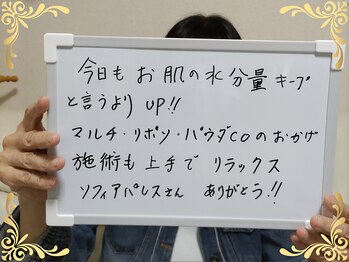 今日もお肌の水分量キープ
と言うよりUP!!
マルチ・リポソ・パウダCOのおかげ
施術も上手でリラックス
ソフィアパレスさん ありがとう!!